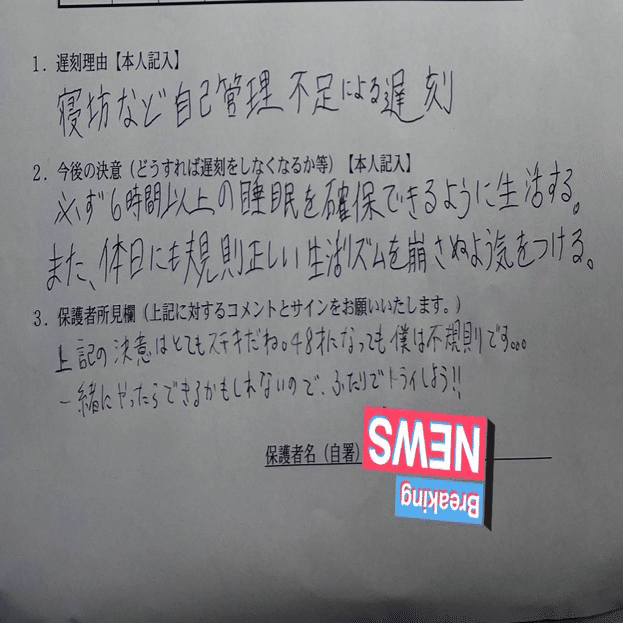 1. 遅刻理由【本人記入】
寝坊など自己管理不足による遅刻
2. 今後の決意（どうすれば遅刻をしなくなるか等）【本人記入】
必ず6時間以上の睡眠を確保できるように生活する。
また、休日にも規則正しい生活リズムを崩さぬよう気をつける。
3. 保護者所見欄（上記に対するコメントとサインをお願いいたします。）
上記の決意はとてもステキだね。48才になっても僕は不規則です。。。
一緒にやったらできるかもしれないので、ふたりでトライしよう!!
保護者名（自署）
Breaking
NEWS